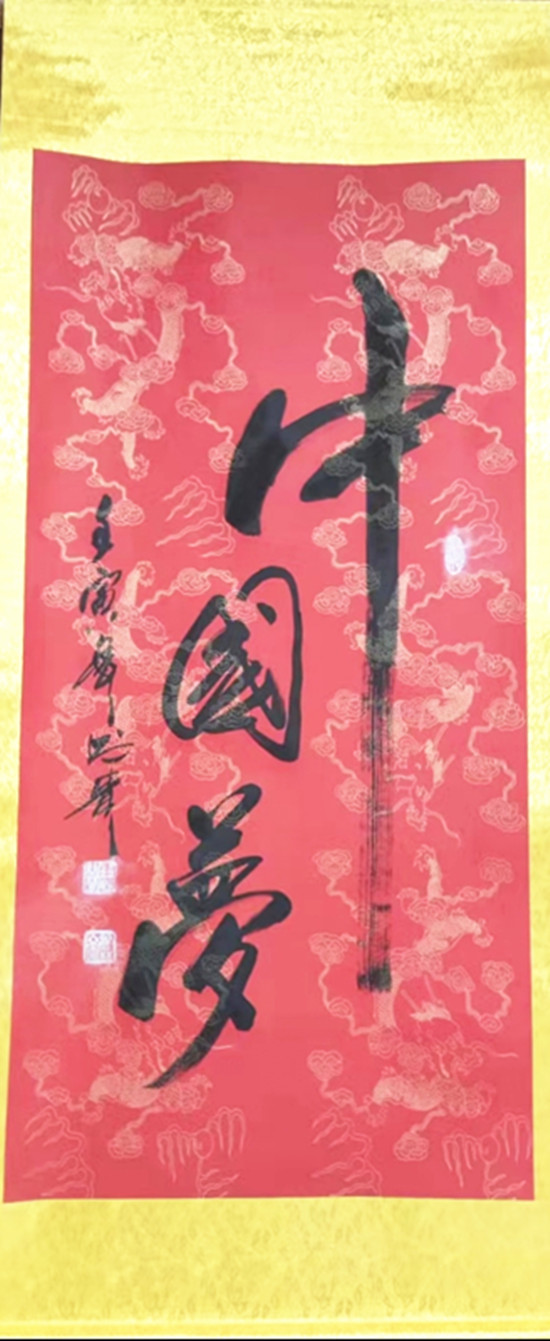 中國夢
壬寅年